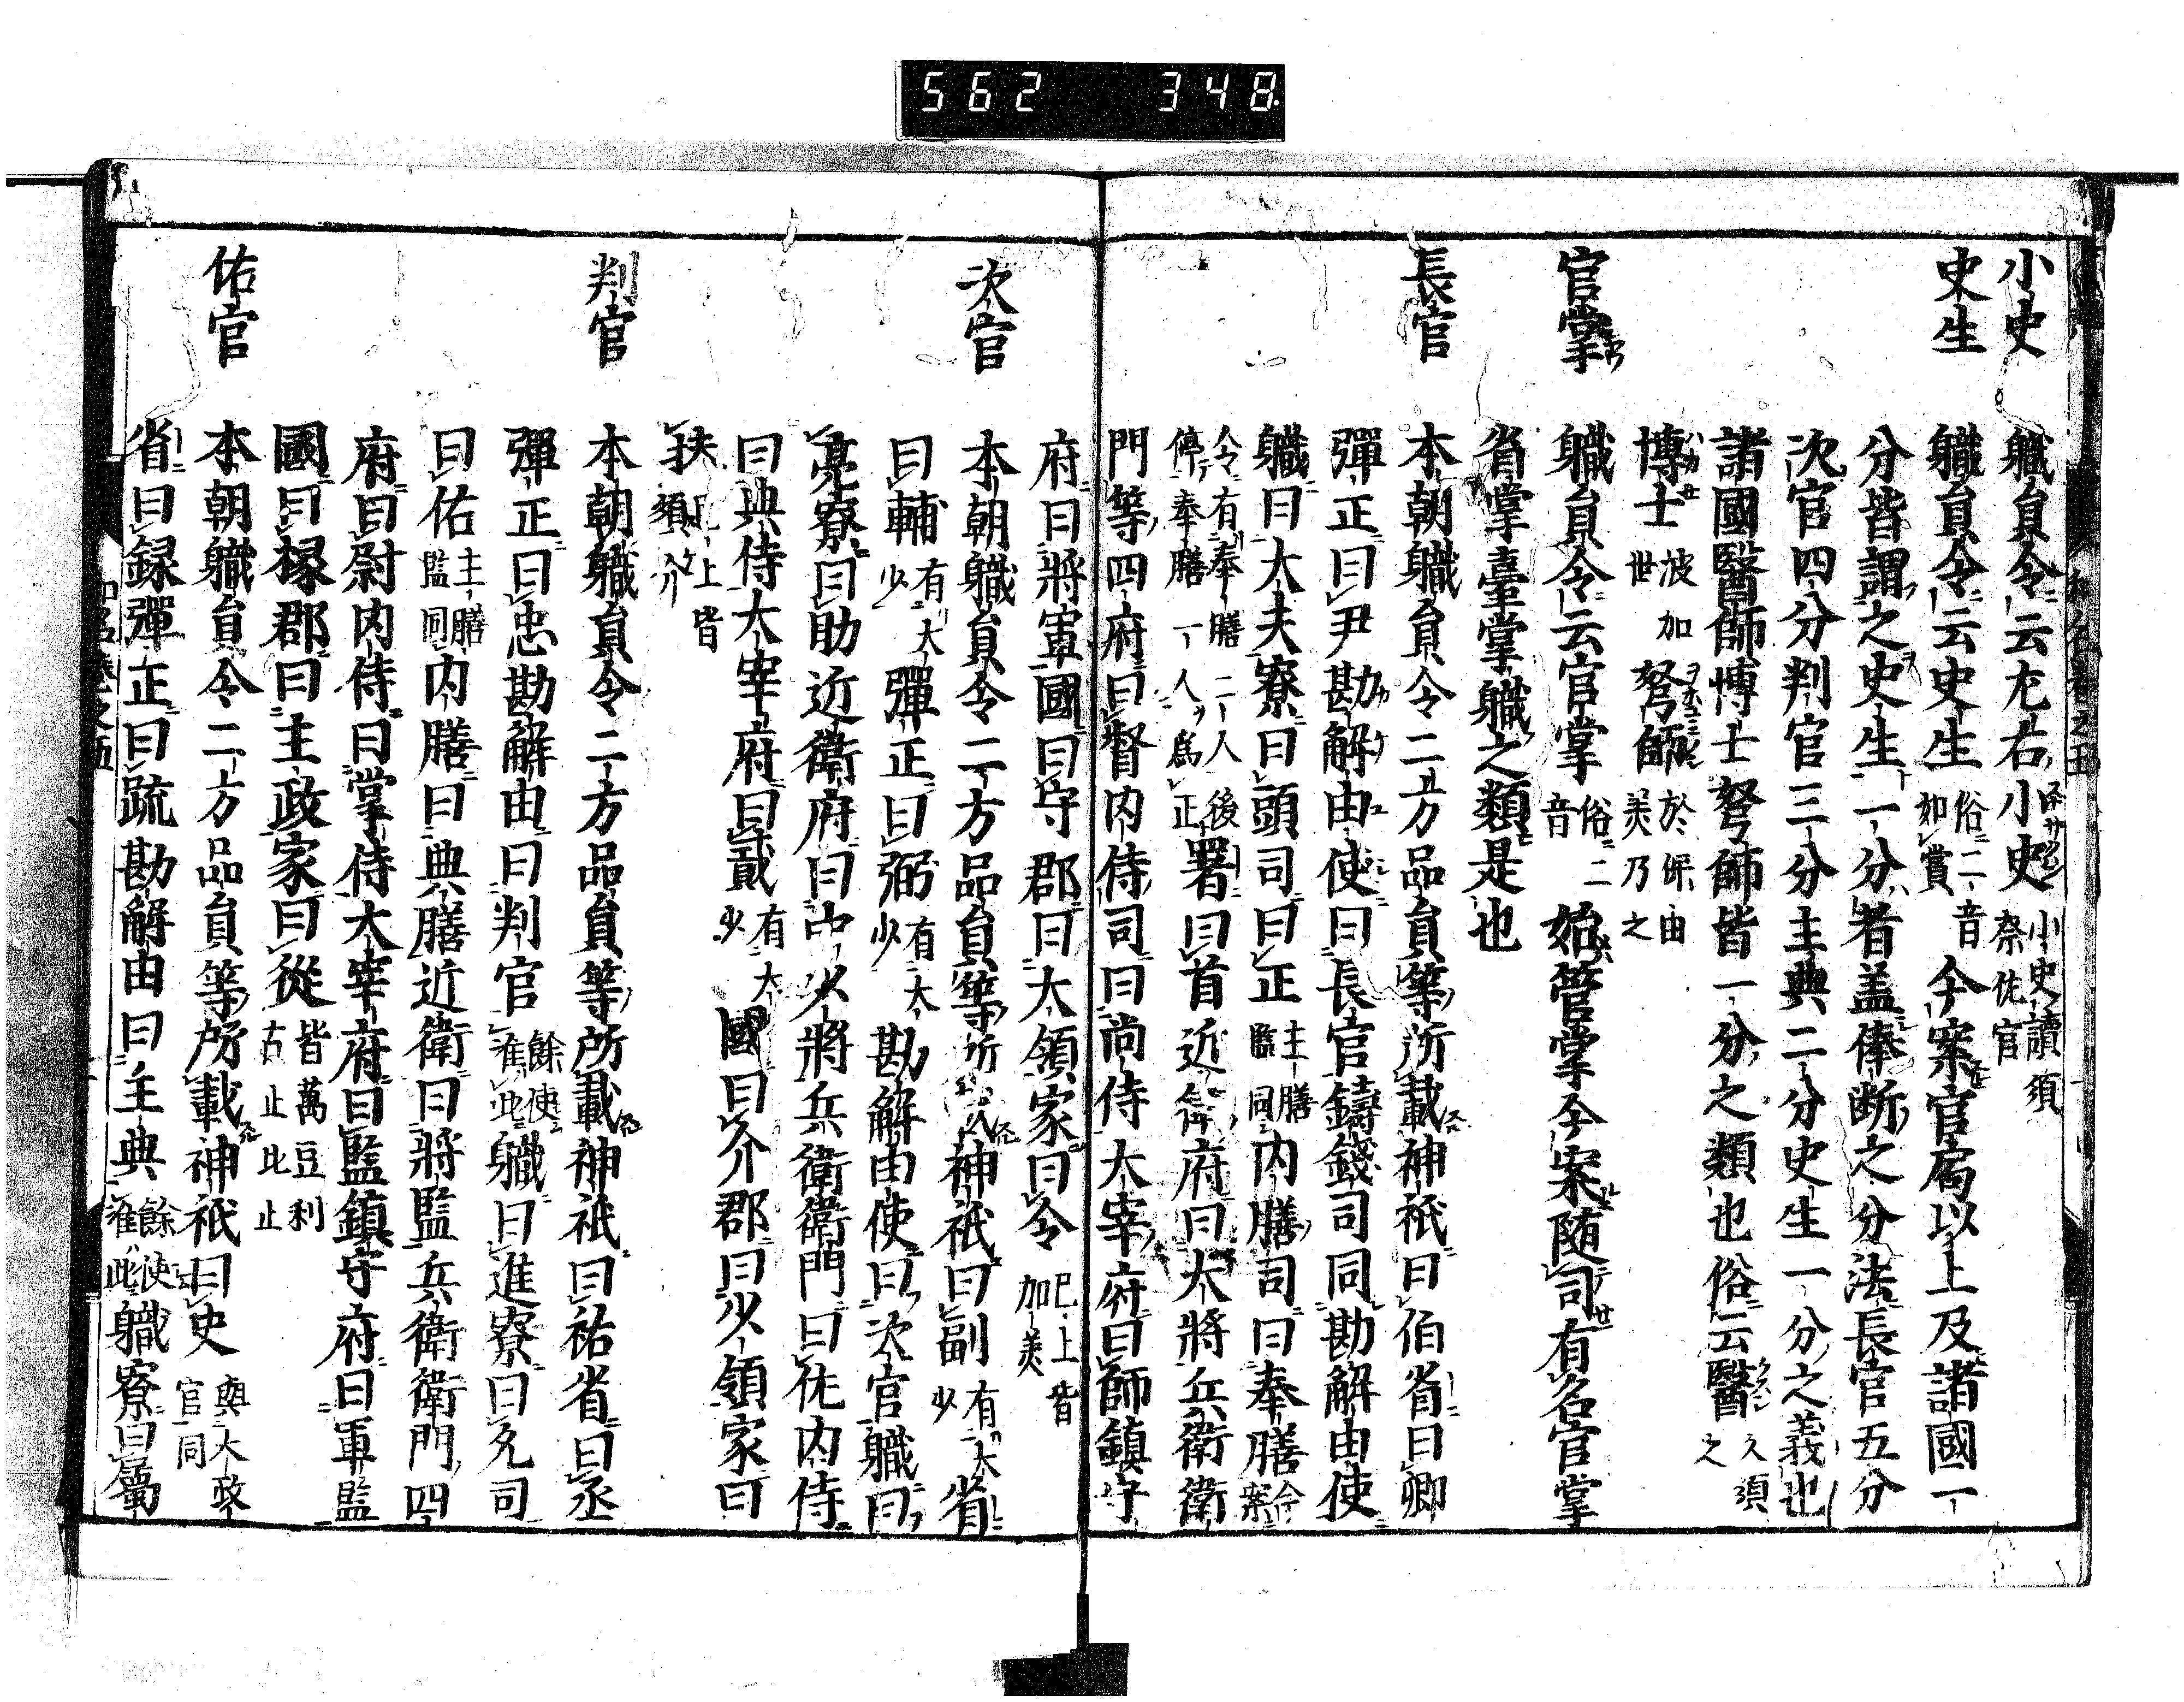 562 348.
小史 職貟令云左右小史 小史讀須奈佐官
史生 職貟令云史生 俗二音如賞 今案官局以上及諸國一
分皆謂之史生一分者盖俸断之分法長官五分
次官四分判官三分主典二分史生一分之義也
諸國醫師博士弩師皆一分之類也俗云醫 久須之
博士 波加世 弩師 於保由美乃之
官掌 職貟令云官掌 俗二音 始管掌今案随司有名官掌
省掌臺掌職之類是也
長官 本朝職貟令二方品貟等所載神祇曰伯省曰卿
彈正曰尹勘解由使曰長官鑄錢司同勘解由使
職曰大夫寮曰頭司曰正 主膳監同 内膳司曰奉膳 今案
令有奉膳二人後停奉膳一人爲正 署曰首近衛府曰大將兵衛衛
門等四府曰督内侍司曰尚侍大宰府曰帥鎮守
府曰將軍國曰守郡曰大領家曰令 已上皆加美
次官 本朝職貟令二方品貟等所載神祇曰副 有大少 省
曰輔 有大少 彈正曰弼 有大少 勘解由使曰次官職曰
亮寮曰助近衛府曰中少將兵衛衛門曰佐内侍
曰典侍大宰府曰貳 有大少 國曰介郡曰少領家曰
扶 已上皆須介
判官 本朝職貟令二方品貟等所載神祇曰祐省曰丞
彈正曰忠勘解由曰判官 餘使准此 職曰進寮曰允司
曰佑 主膳監同 内膳曰典膳近衛曰將監兵衛衛門四
府曰尉内侍曰掌侍大宰府曰監鎮守府曰軍監
國曰掾郡曰主政家曰從 皆萬豆利古止比止
佑官 本朝職貟令二方品貟等所載神祇曰史 與大政官同
省曰録彈正曰疏勘解由曰主典 餘使准此 職寮曰屬